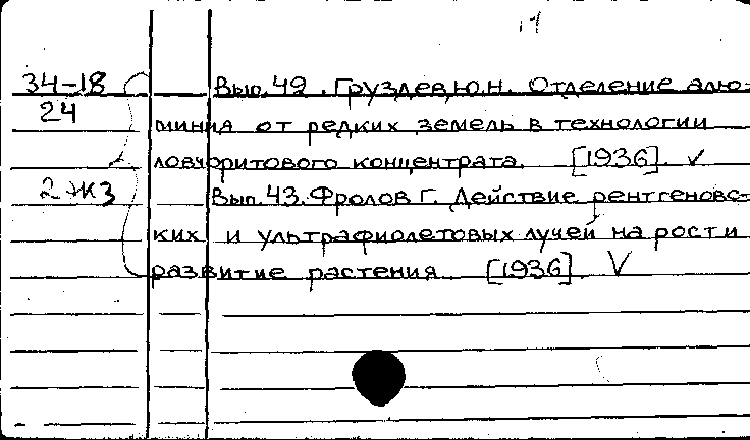 34-18 Вып. 42. Груздев, Ю.Н. Отделение алю-
24 миния от редких земель в технологии
ловчорритового концентрата. [1936]. V
2 экз Вып. 43. Фролов Г. Действие рентгеновс-
ких и ультрафиолетовых лучей на рост и
развитие растения. [1936]. V